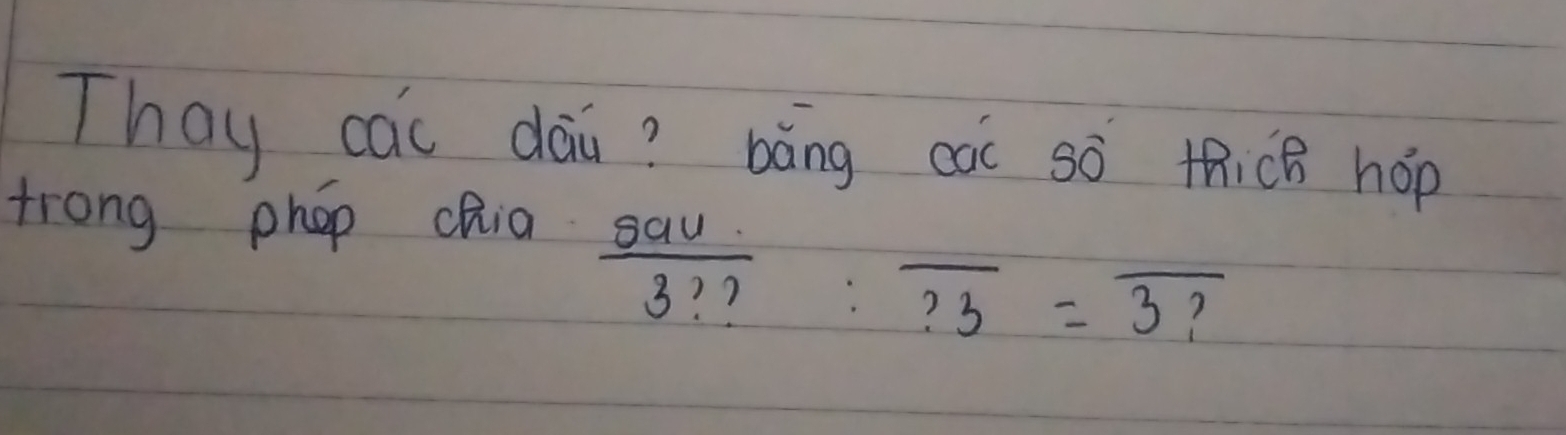 Thay các dấu ? bằng các số thích hợp
trong phép chia sau.
3?? : ?3 = 3?